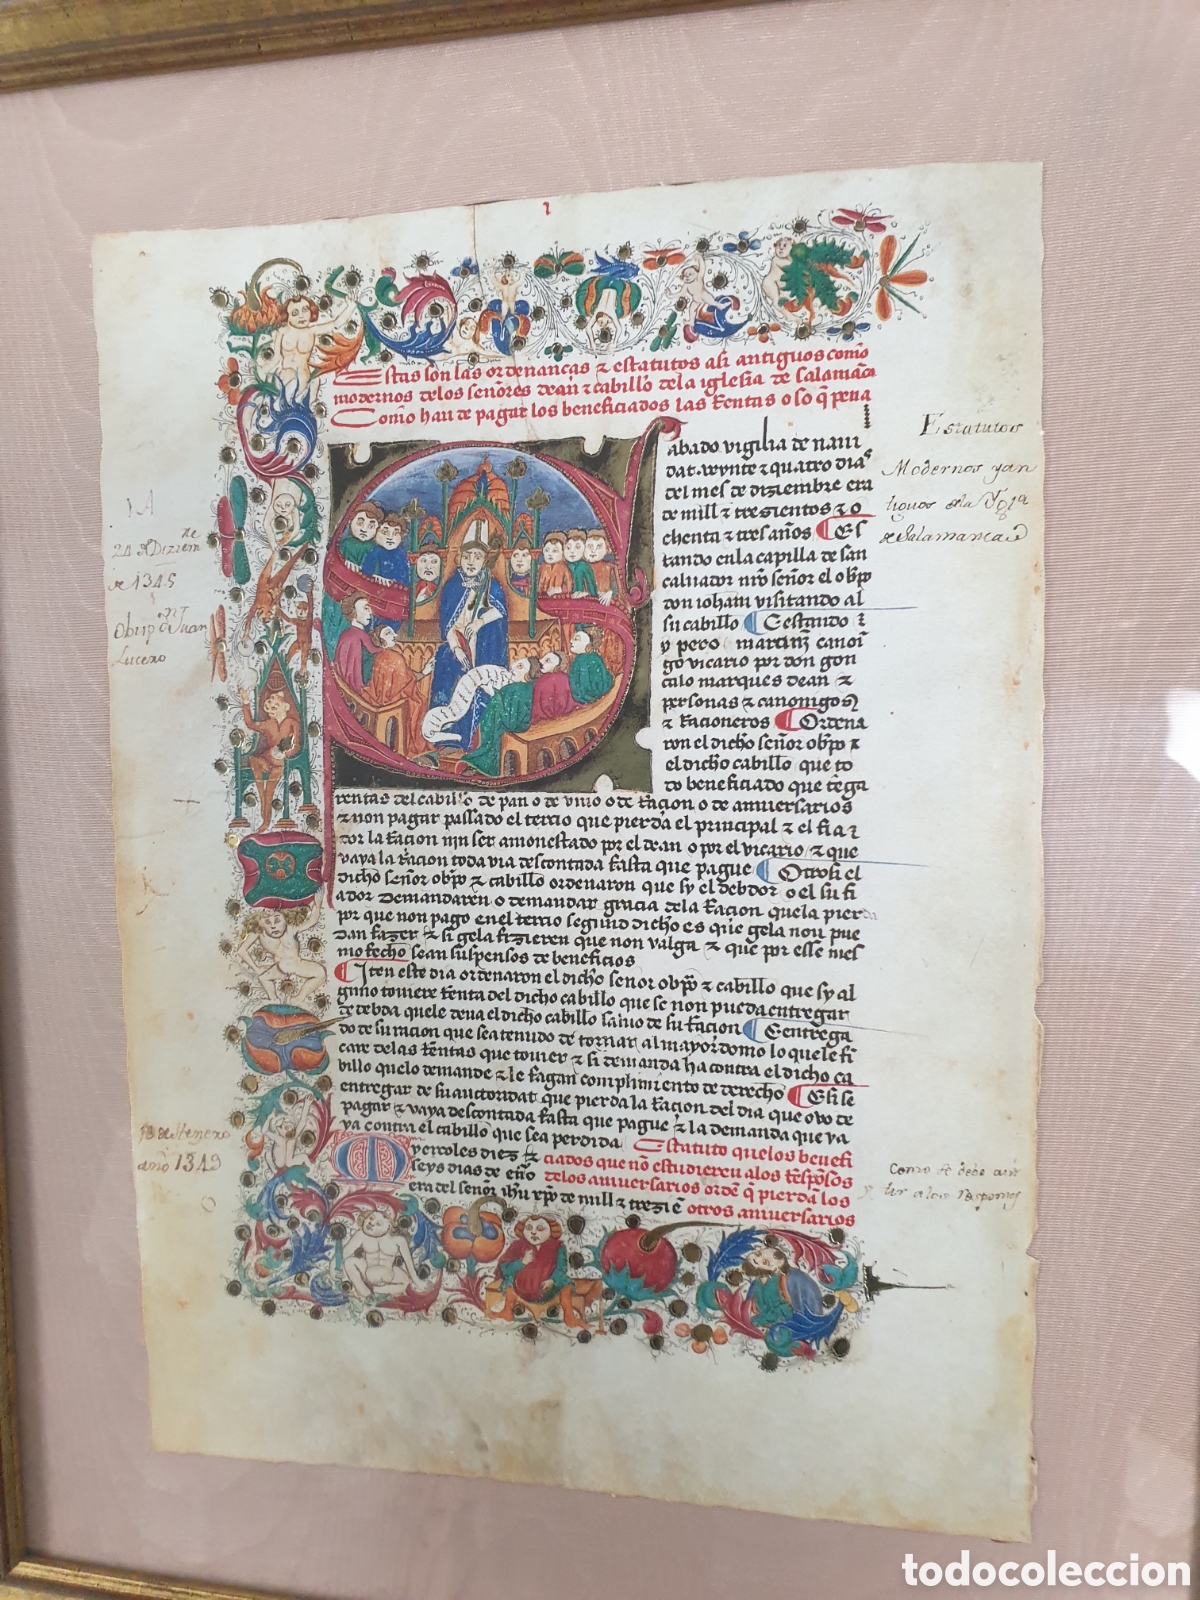 1
Estas son las ordenanças & estatutos asi antiguos como
modernos delos señores dean & cabillo dela iglesia de salamāca
Como han de pagar los beneficiados las rentas o so q̄ pena
Sabado vigilia de naui
dat veynte & quatro dias
del mes de diziembre era
de mill & tresientos & o
chenta & tres años ¶ Es
tando enla capilla de san
caluador nr̄o señor el ob̄po
don ioham visitando al
su cabillo ¶ E estando &
y pero martinz canon
go vicario por don gon
calo marques dean &
personas & canonigos
& racioneros ¶ Ordena
ron el dicho señor ob̄po &
el dicho cabillo que to
do beneficiado que tēga
rentas del cabillo de pan o de vino o de racion o de aniuersarios
& non pagar passado el tercio que pierda el principal & el fia
dor la racion nin ser amonestado por el dean o por el vicario & que
vaya la racion toda via descontada fasta que pague ¶ Otrosi el
dicho señor ob̄po & cabillo ordenaron que sy el debdor o el su fi
ador demandaren o demandar gracia dela racion quela pierda
por que non pago en el tercio segund dicho es que gela non pue
dan fazer & si gela fizieren que non valga & que por esse mes
mo fecho sean suspensos de beneficios
¶ Iten este dia ordenaron el dicho señor ob̄po & cabillo que sy al
guno touiere renta del dicho cabillo que se non pueda entregar
de debda quele deua el dicho cabillo saluo de su racion ¶ E entrega
do de su racion que sea tenudo de tornar al mayordomo lo quele fi
care delas rentas que touier & si demanda ha contra el dicho ca
billo quelo demande & le fagan complimiento de derecho ¶ E si se
entregar de su autoridat que pierda la racion del dia que ouo de
pagar & vaya descontada fasta que pague & la demanda que va
ya contra el cabillo que sea perdida Estatuto quelos benefi
Myercoles diez & ciados que nō estudieren alos respōsos
seys dias de en̄o delos aniuersarios ordē q̄ pierdā los
era del señor ih̄u xp̄o de mill & trezie̅ otros aniuersarios
Estatutos
Modernos y an
tiguos de la Ygl.ª
de Salamanca
1A
24 de Diziem.re
de 1345
Obispo D.n Juan
Lucero
16 de Henero
año 1349
Como se debe asis
tir a los Responsos
todocoleccion